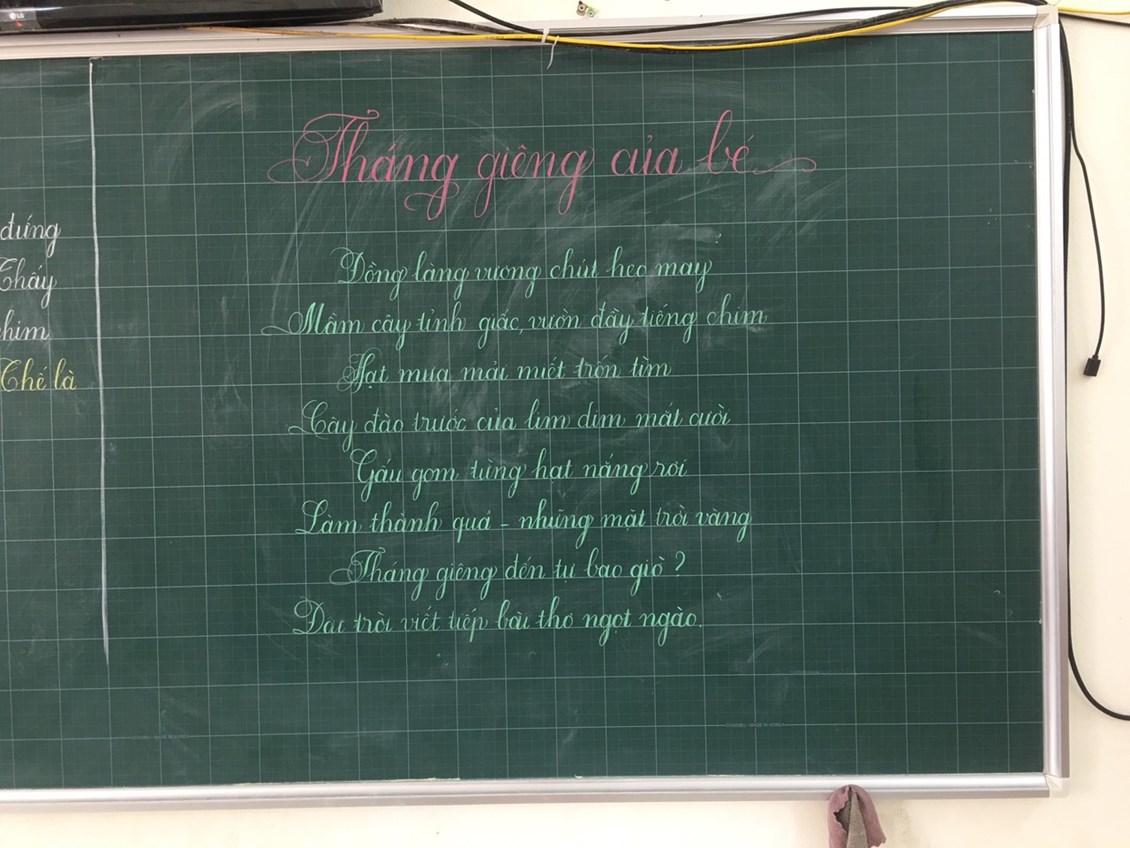 LG
đứng
Thấy
chim
Thế là
Tháng giêng của bé
Đồng làng vương chút heo may
Mầm cây tỉnh giấc, vườn đầy tiếng chim
Hạt mưa mải miết trốn tìm
Cây đào trước cửa lim dim mắt cười
Gấu gom từng hạt nắng rơi
Làm thành quả - những mặt trời vàng
Tháng giêng đến tự bao giờ ?
Đất trời viết tiếp bài thơ ngọt ngào.